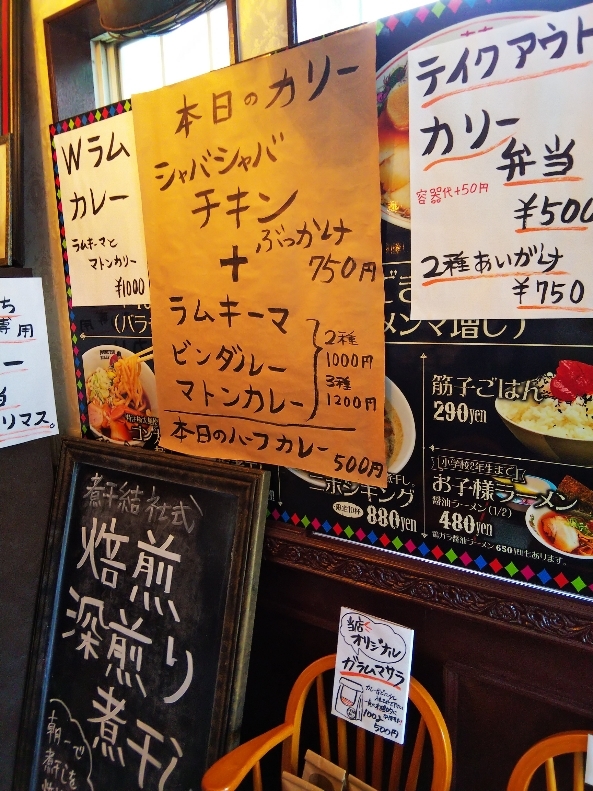 本日のカリー
シャバシャバ
チキン
ぶっかけ
+
750円
ラムキーマ
ビンダルー
マトンカレー
2種
1000円
3種
1200円
本日のハーフカレー
500円
Wラム
カレー
ラムキーマと
マトンカリー
¥1000
テイクアウト
カリー
弁当
容器代+50円
¥500
2種あいがけ
¥750
メンマ増し)
筋子ごはん
290yen
小学校2年生まで
お子様ラーメン
醤油ラーメン(1/2)
480yen
鶏ガラ醤油ラーメン 650yenもあります。
限定10杯
880yen
専用
リマス。
煮干結社式
焙煎
深煎り
煮干し
朝一で
煮干しを
当店
オリジナル
ガラムマサラ
500円